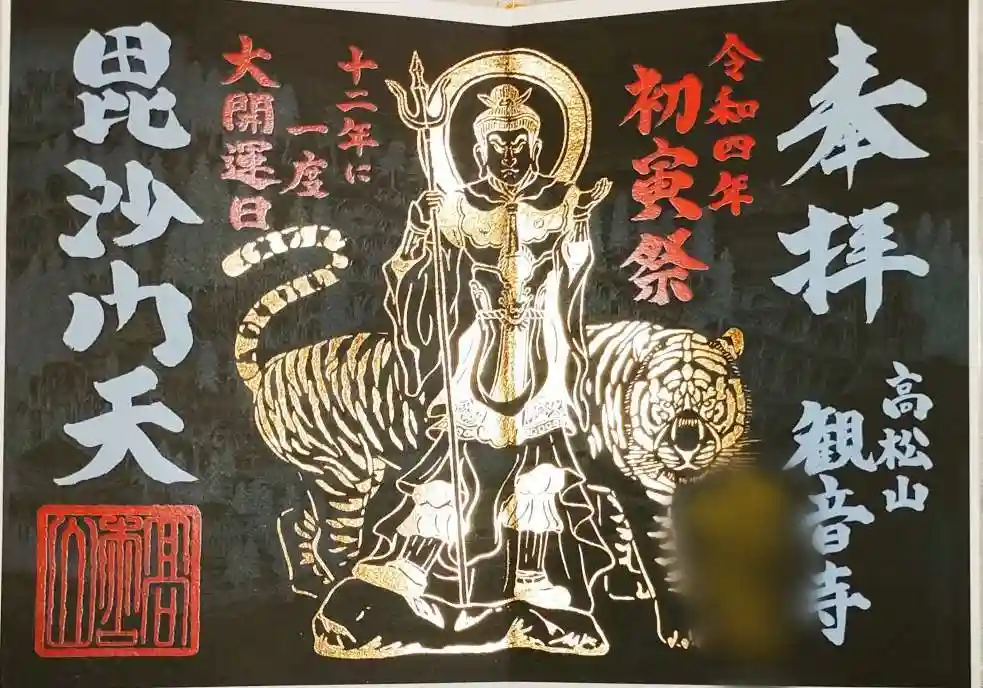 奉拝
高松山
観音寺
令和四年
初寅祭
十二年に
一度
大開運日
毘沙門天